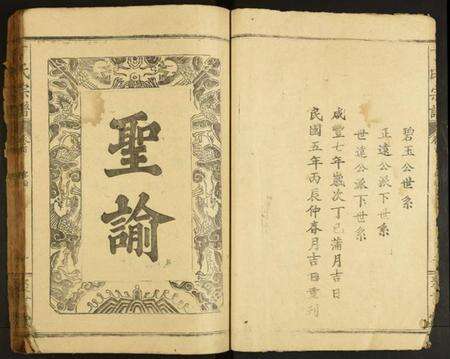 碧玉公世系
正遠公派下世系
世遠公派下世系
咸豐七年歲次丁巳蒲月吉日
民國五年丙辰仲春月吉日重刊
聖諭
氏宗譜